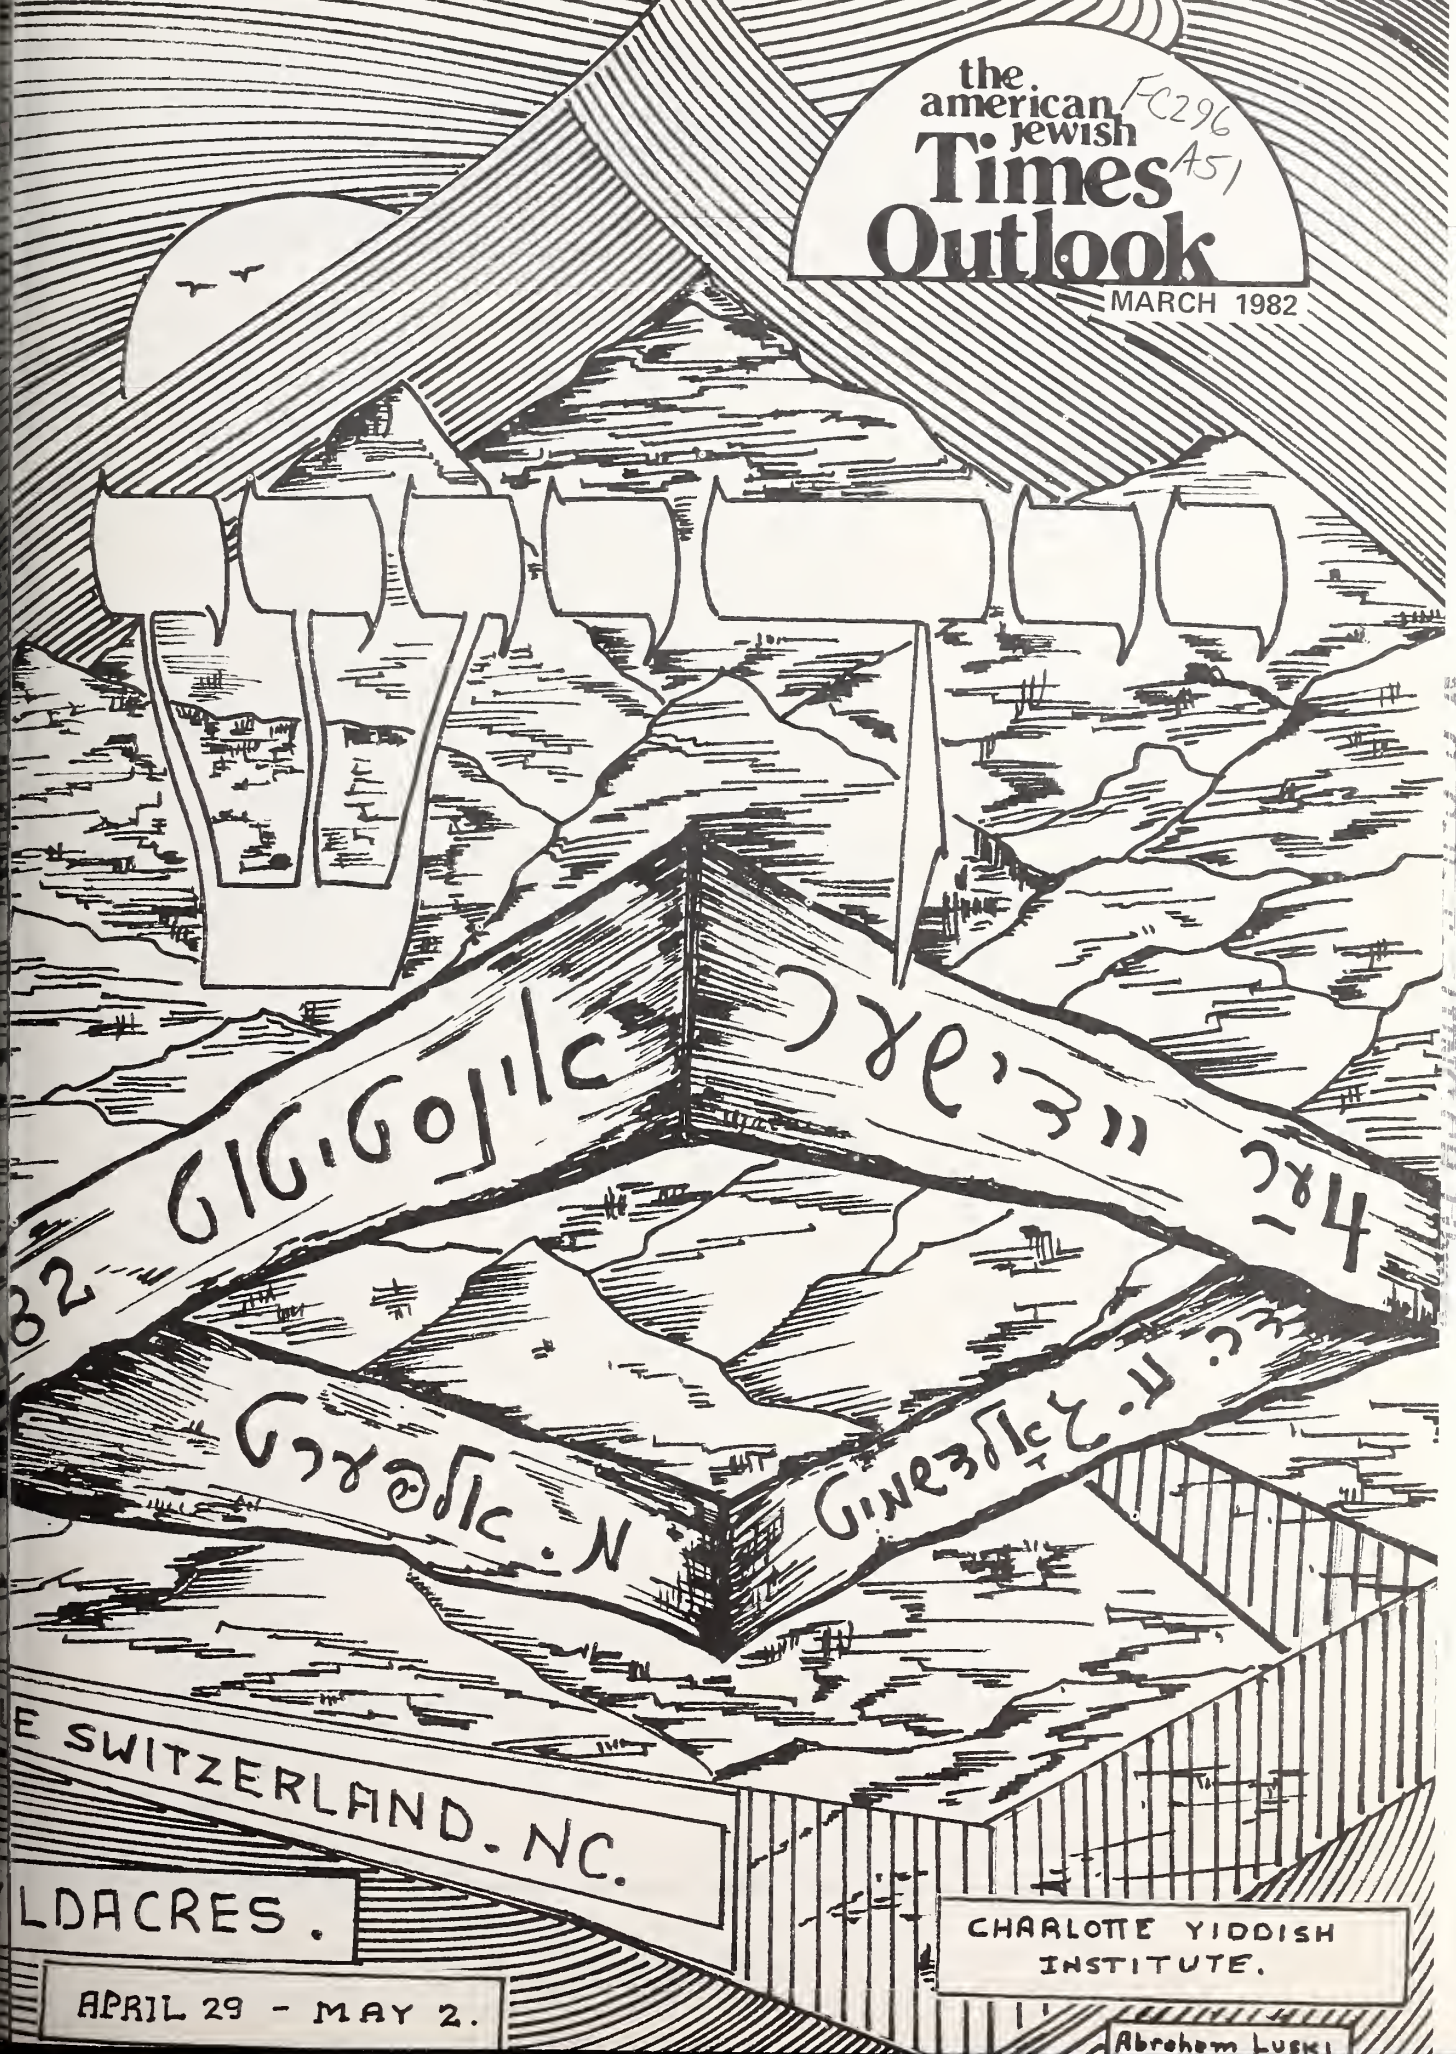 the
american
jewish
Times
Outlook
FC296
A51
MARCH 1982
4ער יידישער אינסטיטוט
82
דר. ע. גאָלדשמיט
מ. אלפּערט
E SWITZERLAND. NC.
LDACRES.
APRIL 29 - MAY 2.
CHARLOTTE YIDDISH
INSTITUTE.
Abraham LUSKI